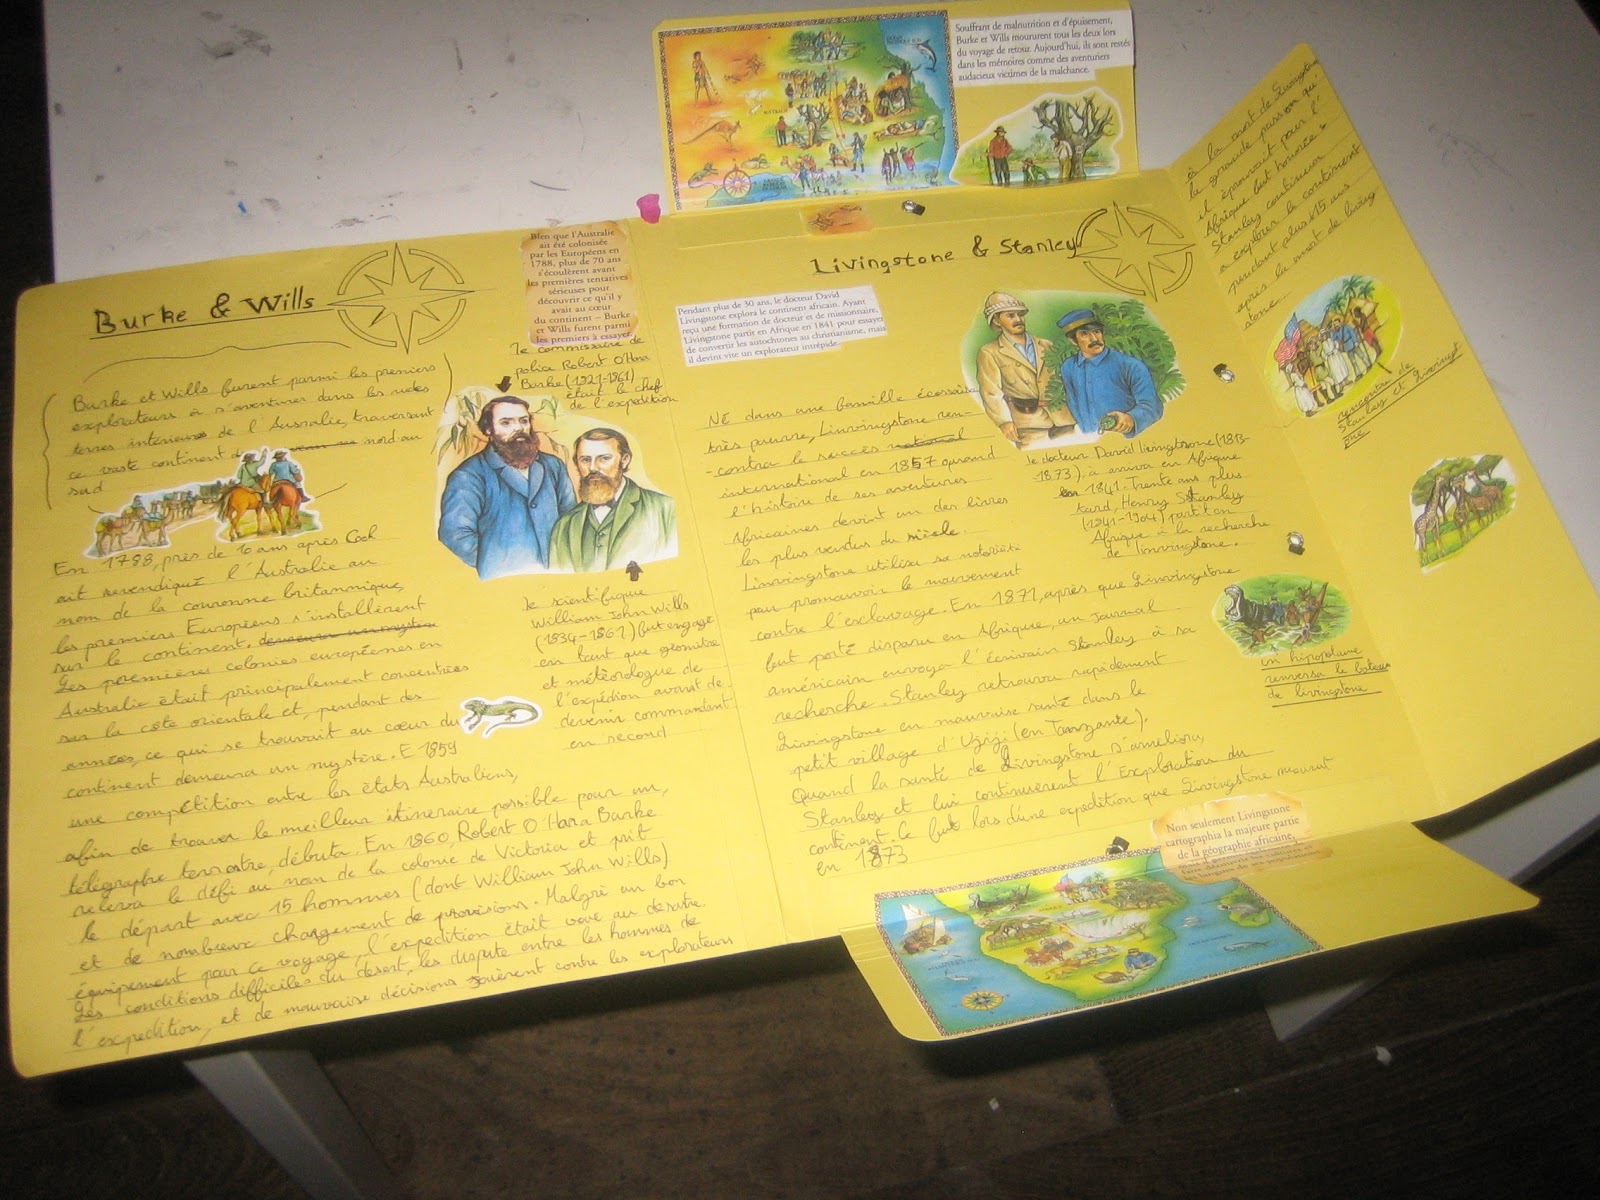 Souffrant de malnutrition et d'épuisement,
Burke et Wills moururent tous les deux lors
du voyage de retour. Aujourd'hui, ils sont restés
dans les mémoires comme des aventuriers
audacieux victimes de la malchance.
Burke & Wills
Bien que l'Australie
ait été colonisée
par les Européens en
1788, plus de 70 ans
s'écoulèrent avant
les premières tentatives
sérieuses pour
découvrir ce qu'il y
avait au cœur
du continent – Burke
et Wills furent parmi
les premiers à essayer.
Burke et Wills furent parmi les premiers
explorateurs à s'aventurer dans les rudes
terres intérieures de l'Australie, traversant
ce vaste continent du nord au
sud
le commissaire de
police Robert O'Hara
Burke (1921-1961)
était le chef
de l'expedition
En 1788, près de 10 ans après Cook
ait revendiqué l'Australie au
nom de la couronne britannique,
les premiers Européens s'installèrent
sur le continent.
Les premières colonies européennes en
Australie était principalement concentrées
sur la côte orientale et, pendant des
années, ce qui se trouvait au cœur du
continent demeura un mystère. E 1859
une compétition entre les états Australiens,
afin de trouver le meilleur itineraire possible pour un,
télégraphe terrestre, débuta. En 1860, Robert O'Hara Burke
releva le défi au nom de la colonie de Victoria et prit
le départ avec 15 hommes (dont William John Wills)
et de nombreux changement de provisions. Malgré un bon
équipement pour ce voyage, l'expedition était voué au désatre.
Les conditions difficiles du desert, les dispute entre les hommes de
l'expedition, et de mauvaise décisions jouèrent contre les explorateurs
le scientifique
William John Wills
(1834-1861) fut engagé
en tant que géomètre
et météorologue de
l'expédion avant de
devenir commandant
en second
Livingstone & Stanley
Pendant plus de 30 ans, le docteur David
Livingstone explora le continent africain. Ayant
reçu une formation de docteur et de missionnaire,
Livingstone partit en Afrique en 1841 pour essayer
de convertir les autochtones au christianisme, mais
il devint vite un explorateur intrépide.
Né dans une famille écossaise
très pauvre, Linvingstone ren-
-contra le succès national
international en 1857 quand
l'histoire de ses aventures
Africaines devint un des livres
les plus vendus du siècle.
Linvingstone utilisa sa notoriété
pour promouvoir le mouvement
contre l'esclavage. En 1871, après que Linvingstone
fut porté disparu en Afrique, un journal
américain envoya l'écrivain Stanley à sa
recherche. Stanley retrouva rapidement
Livingstone en mauvaise santé dans le
petit village d'Ujiji (en Tanzanie).
Quand la santé de Livingstone s'améliora,
Stanley et lui continuèrent l'Exploration du
continent. Ce fut lors d'une expédition que Livingstone mourut
en 1873
le docteur David livingtsone (1813-
-1873), a arriva en Afrique
en 1841. Trente ans plus
tard, Henry Stanley
(1841-1904) partit en
Afrique à la recherche
de linvingstone.
à la mort de Livingstone
la grande passion qu'
il éprouvait pour l'
Afrique fut honorée
Stanley continua
a explorer le continent
pendant plus 15 ans
après la mort de living
stone...
rencontre de
Stanley et livingst
one
un hipopotame
renversa le bateau
de livingstone
Non seulement Livingstone
cartographia la majeure partie
de la géographie africaine,